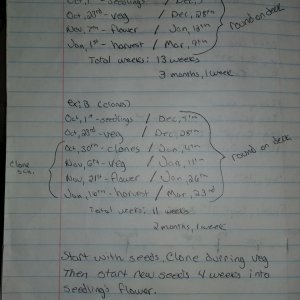 Oct, 1st - seedlings / Dec, 5th
Oct, 23rd - veg / Dec, 28th
Nov, 7th - flower / Jan, 13th
Jan, 1st - harvest / Mar, 9th
round on deck
Total weeks: 13 weeks
3 months, 1 week
Ex: B (clones)
Oct, 1st - seedlings / Dec, 7th
Oct, 23rd - veg / Dec, 28th
Oct, 30th - clones / Jan, 4th
Nov, 6th - veg / Jan, 11th
Nov, 21st - flower / Jan, 26th
Jan, 16th - harvest / Mar, 23rd
Clone
round on deck
Total weeks: 11 weeks
2 months, 1 week
Start with seeds, Clone durring veg
Then start new seeds 4 weeks into
seedlings flower.